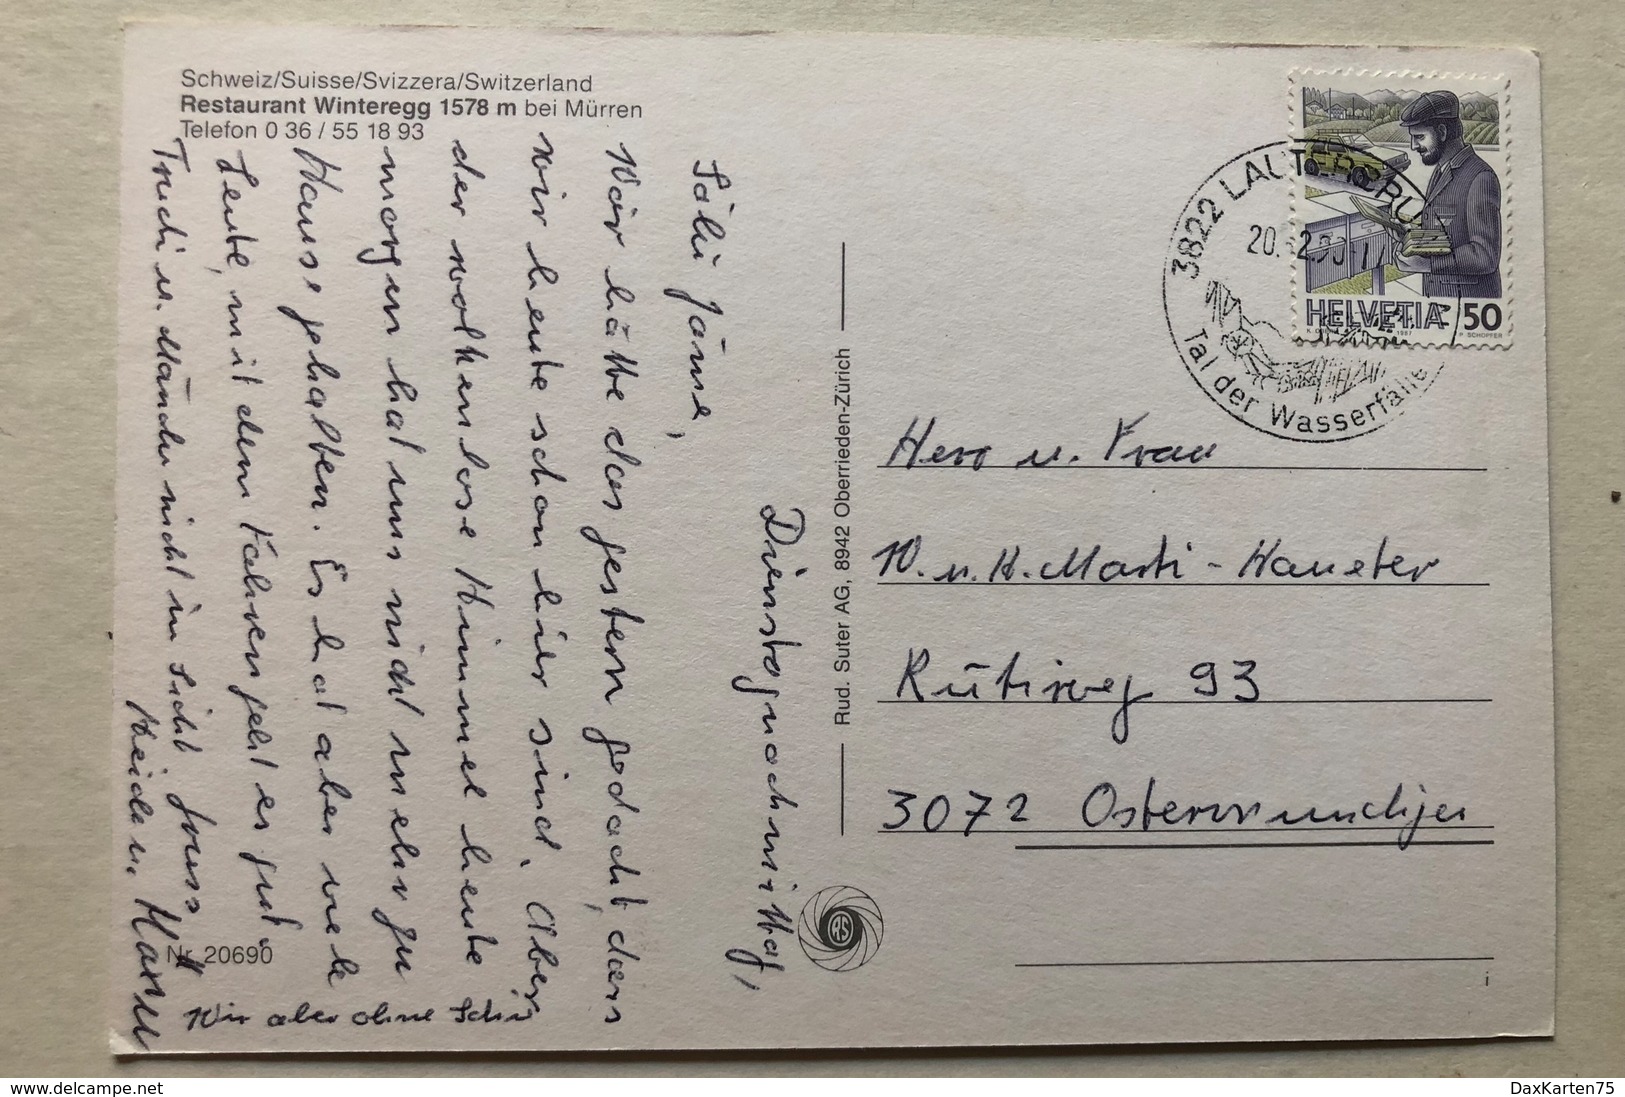 Schweiz/Suisse/Svizzera/Switzerland
Restaurant Winteregg 1578 m bei Mürren
Telefon 0 36 / 55 18 93
Dienstagnachmittag,
Sali zäme,
Wär hätte das gestern gedacht, dass
wir heute schon hier sind. Aber
der wolkenlose Himmel heute
morgen hat uns nicht mehr zu
Hause gehalten. Es hat aber viele
Leute, mit dem Fahren geht es gut.
Trudi u. Mändu nicht in Sicht. Gruss
Heidi u. Hansu
Wir aber ohne Schi
Nr. 20690
Rud. Suter AG, 8942 Oberrieden-Zürich
RS
3822 LAUTERBRU
20. 2.90-17
Tal der Wasserfälle
HELVETIA 50
1987
Herr u. Frau
W. u. H. Marti-Haueter
Rütiweg 93
3072 Ostermundigen
i
www.delcampe.net
DaxKarten75